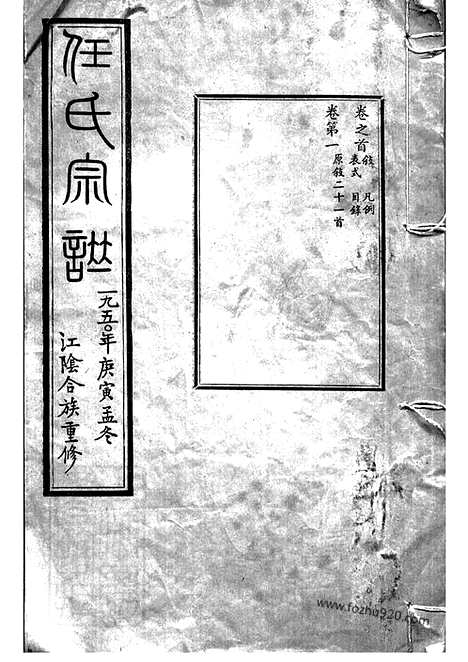 卷之首 敘 凡例
表式 目錄
卷第一 原敘二十一首
任氏宗譜
一九五〇年庚寅孟冬
江陰合族重修
www.fozhu920.com